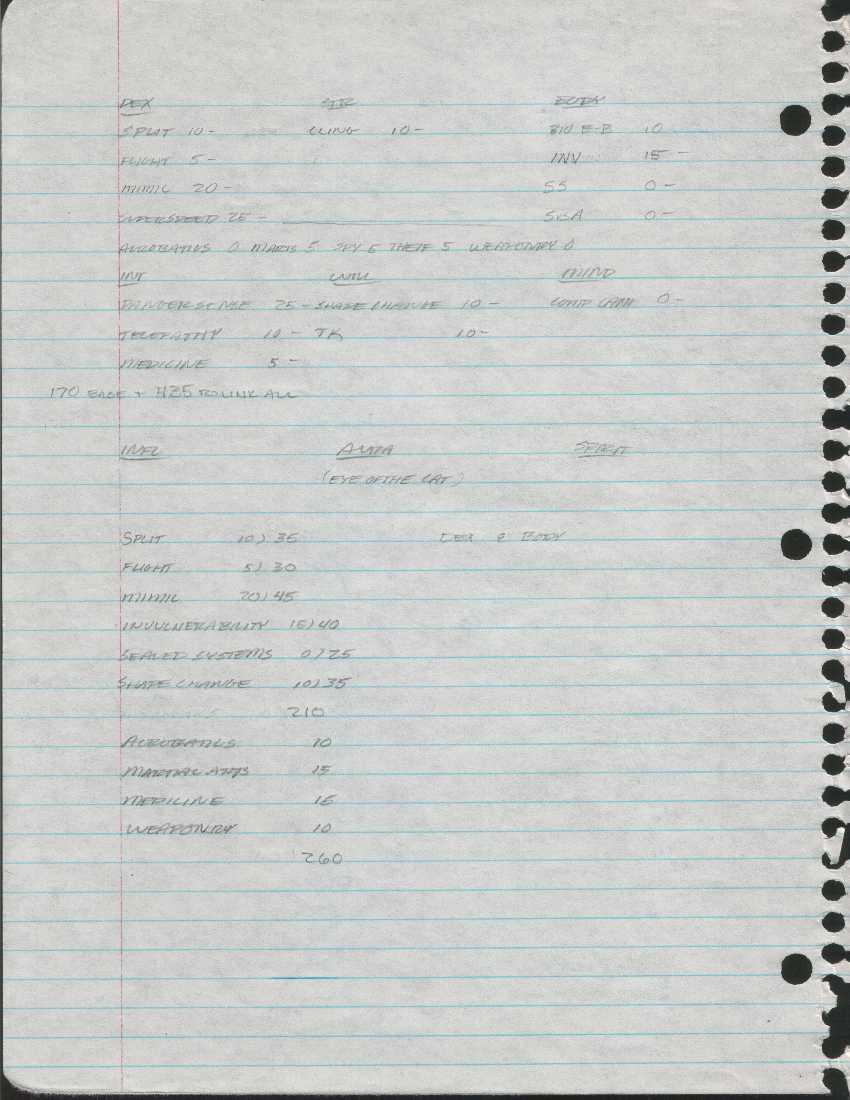 DEX STR BODY
SPLIT 10- CLING 10- BIO E-B 10
FLIGHT 5- INV 15-
MIMIC 20- SS 0-
SUPERSPEED 25- 0-
ACROBATICS 0 MARTS 5 SPY 5 THIEF 5 WEAPONRY 0
INT WILL MIND
DANGER SENSE 25- SHAPE CHANGE 10- 0-
TELEPATHY 10- TK 10-
MEDICINE 5-
170 BASE + 425 TO LINK ALL
INFL AURA SPIRIT
(EYE OF THE CAT)
SPLIT 10) 35 DEX & BODY
FLIGHT 5) 30
MIMIC 20) 45
INVULNERABILITY 15) 40
SEALED SYSTEMS 0) 25
SHAPE CHANGE 10) 35
210
ACROBATICS 10
MARTIAL ARTS 15
MEDICINE 15
WEAPONRY 10
260